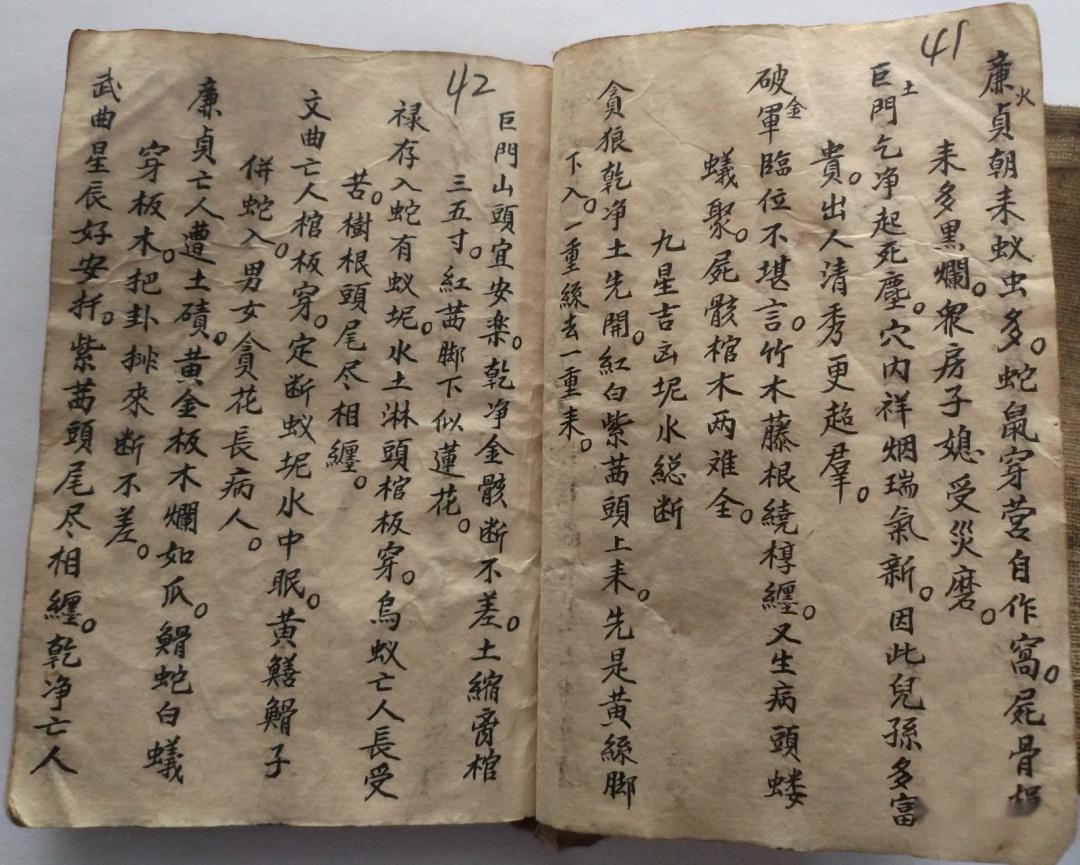 41
廉火貞朝耒蚁虫多。蛇鼠穿营自作窩。屍骨
耒多黑爛。眾房子媳受災磨。
巨門土乞净起死塵。穴内祥烟瑞氣新。因此兒孫多富
貴。出人清秀更超羣。
破軍金臨位不堪言。竹木藤根繞椁纏。又生病頭蝼
蟻聚。屍骸棺木两难全。
九星吉凶坭水総断
貪狼乾净土先開。紅白紫茜頭上耒。先是黄絲脚
下入。一重絲去一重耒。
42
巨門山頭宜安楽。乾净金骸断不差。土縮脔棺
三五寸。紅茜脚下似蓮花。
禄存入蛇有蚁坭。水土淋頭棺板穿。烏蚁亡人長受
苦。樹根頭尾尽相纏。
文曲亡人棺板穿。定断蚁坭水中眠。黄鱔鰼子
併蛇入。男女貪花長病人。
廉貞亡人遭土磧。黄金板木爛如瓜。鰼蛇白蟻
穿板木。把卦排來断不差。
武曲星辰好安扦。紫茜頭尾尽相纏。乾净亡人